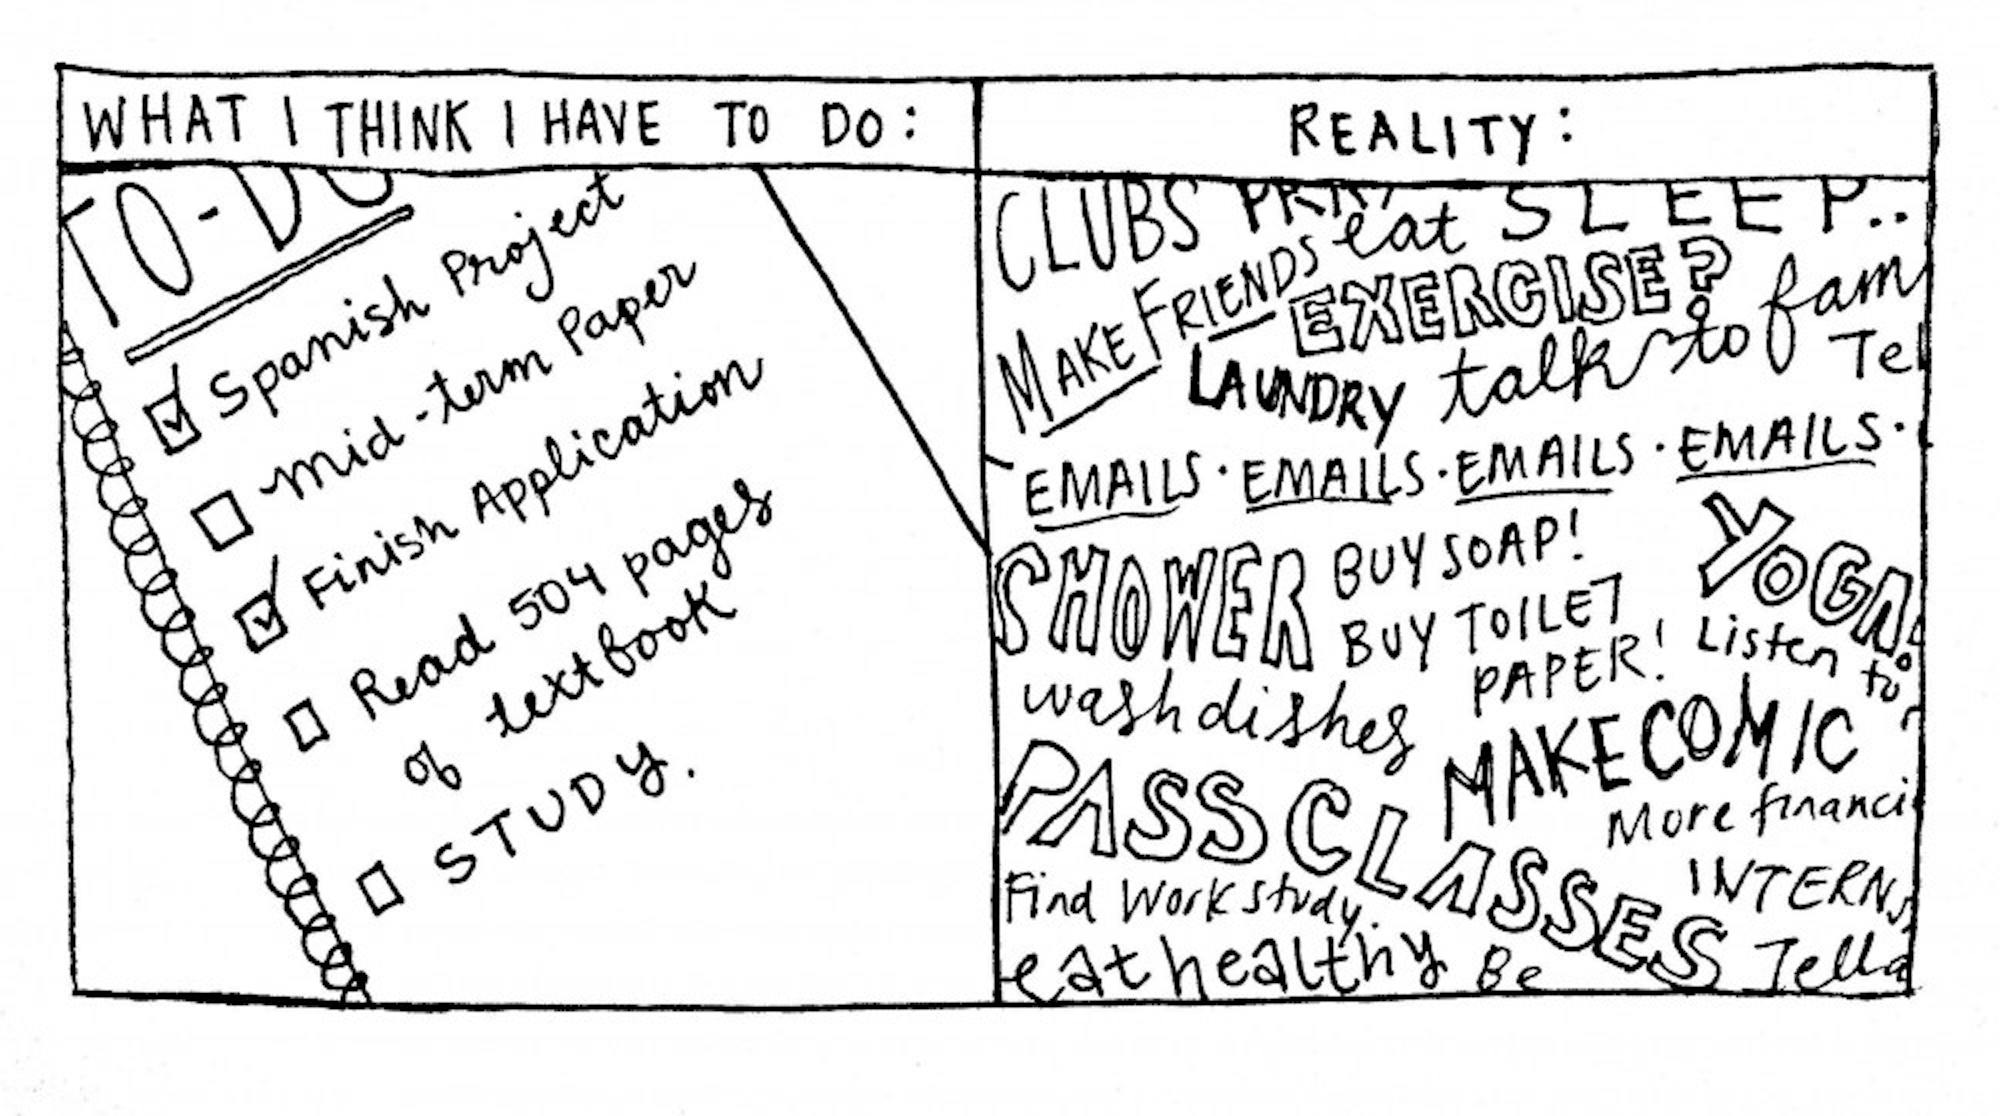 WHAT I THINK I HAVE TO DO:
TO-DO
Spanish Project
Mid-term Paper
Finish Application
Read 504 pages
of textbook
STUDY.
REALITY:
CLUBS eat SLEEP..
MAKE FRIENDS EXERCISE?
LAUNDRY talk to fam
EMAILS · EMAILS · EMAILS · EMAILS ·
SHOWER BUY SOAP! YOGA!
BUY TOILET
PAPER! Listen to
wash dishes
MAKE COMIC
PASS CLASSES
More financi
INTERNS
Find Work study.
eat healthy Be Tella